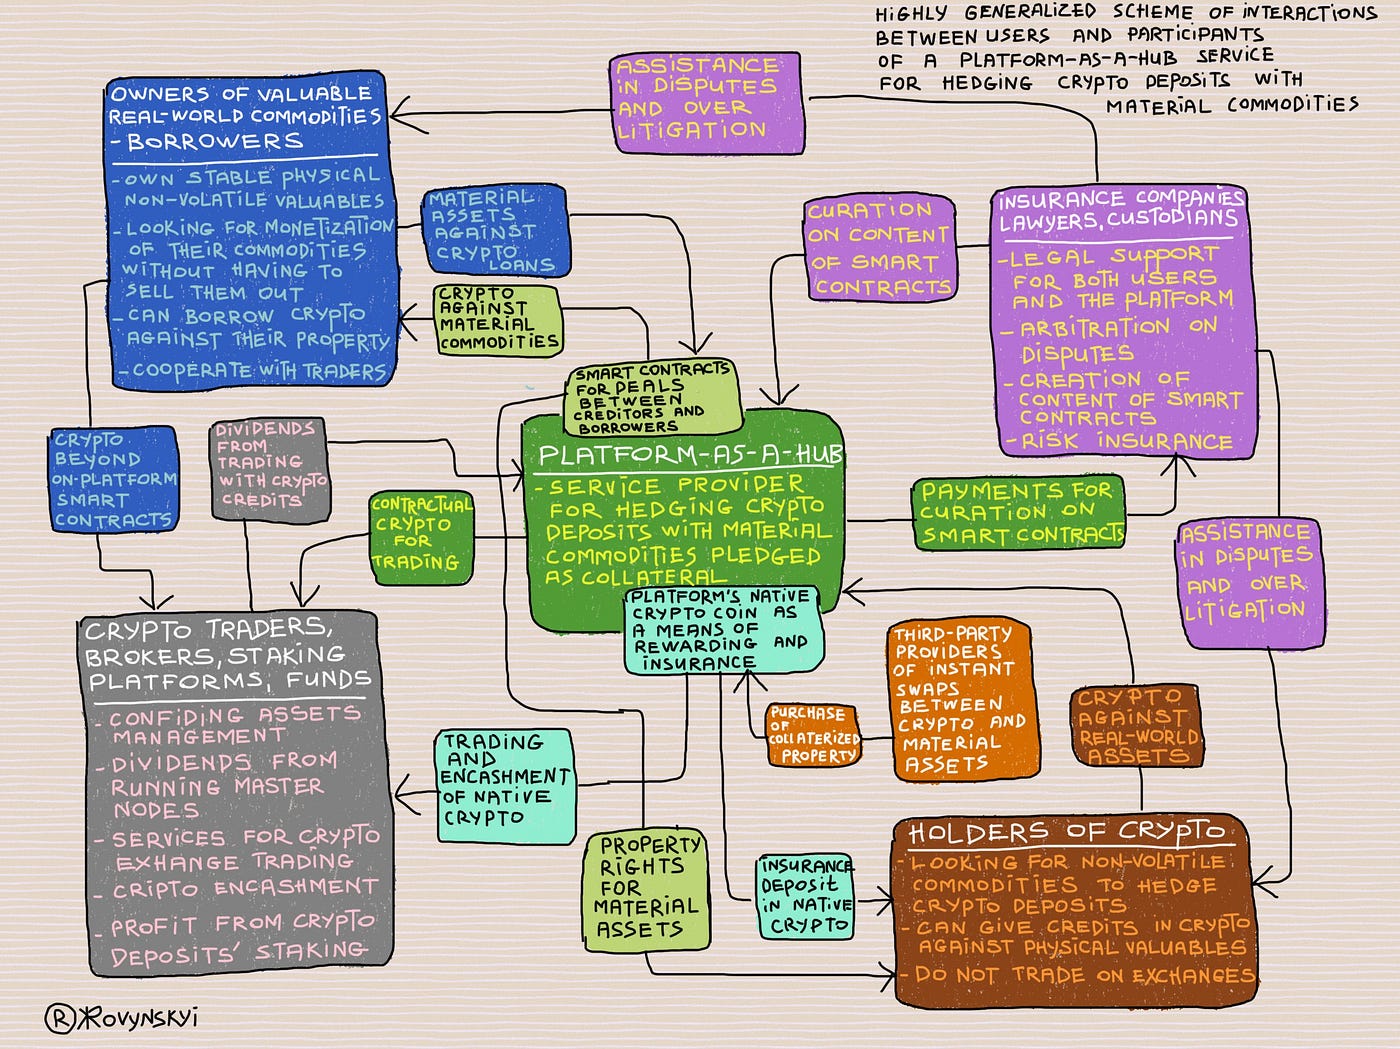 HIGHLY GENERALIZED SCHEME OF INTERACTIONS
BETWEEN USERS AND PARTICIPANTS
OF A PLATFORM-AS-A-HUB SERVICE
FOR HEDGING CRYPTO DEPOSITS WITH
MATERIAL COMMODITIES
OWNERS OF VALUABLE
REAL-WORLD COMMODITIES
- BORROWERS
- OWN STABLE PHYSICAL
NON-VOLATILE VALUABLES
- LOOKING FOR MONETIZATION
OF THEIR COMMODITIES
WITHOUT HAVING TO
SELL THEM OUT
- CAN BORROW CRYPTO
AGAINST THEIR PROPERTY
- COOPERATE WITH TRADERS
ASSISTANCE
IN DISPUTES
AND OVER
LITIGATION
MATERIAL
ASSETS
AGAINST
CRYPTO
LOANS
CRYPTO
AGAINST
MATERIAL
COMMODITIES
CURATION
ON CONTENT
OF SMART
CONTRACTS
INSURANCE COMPANIES
LAWYERS, CUSTODIANS
- LEGAL SUPPORT
FOR BOTH USERS
AND THE PLATFORM
- ARBITRATION ON
DISPUTES
- CREATION OF
CONTENT OF SMART
CONTRACTS
- RISK INSURANCE
SMART CONTRACTS
FOR DEALS
BETWEEN
CREDITORS AND
BORROWERS
CRYPTO
BEYOND
ON-PLATFORM
SMART
CONTRACTS
DIVIDENDS
FROM
TRADING
WITH CRYPTO
CREDITS
CONTRACTUAL
CRYPTO
FOR
TRADING
PLATFORM-AS-A-HUB
- SERVICE PROVIDER
FOR HEDGING CRYPTO
DEPOSITS WITH MATERIAL
COMMODITIES PLEDGED
AS COLLATERAL
PLATFORM'S NATIVE
CRYPTO COIN AS
A MEANS OF
REWARDING AND
INSURANCE
PAYMENTS FOR
CURATION ON
SMART CONTRACTS
ASSISTANCE
IN DISPUTES
AND OVER
LITIGATION
CRYPTO TRADERS,
BROKERS, STAKING
PLATFORMS, FUNDS
- CONFIDING ASSETS
MANAGEMENT
- DIVIDENDS FROM
RUNNING MASTER
NODES
- SERVICES FOR CRYPTO
EXHANGE TRADING
- CRIPTO ENCASHMENT
- PROFIT FROM CRYPTO
DEPOSITS' STAKING
TRADING
AND
ENCASHMENT
OF NATIVE
CRYPTO
PURCHASE
OF
COLLATERIZED
PROPERTY
THIRD-PARTY
PROVIDERS
OF INSTANT
SWAPS
BETWEEN
CRYPTO AND
MATERIAL
ASSETS
CRYPTO
AGAINST
REAL-WORLD
ASSETS
PROPERTY
RIGHTS
FOR
MATERIAL
ASSETS
INSURANCE
DEPOSIT
IN NATIVE
CRYPTO
HOLDERS OF CRYPTO
- LOOKING FOR NON-VOLATILE
COMMODITIES TO HEDGE
CRYPTO DEPOSITS
- CAN GIVE CREDITS IN CRYPTO
AGAINST PHYSICAL VALUABLES
- DO NOT TRADE ON EXCHANGES
® ROVYNSKYI